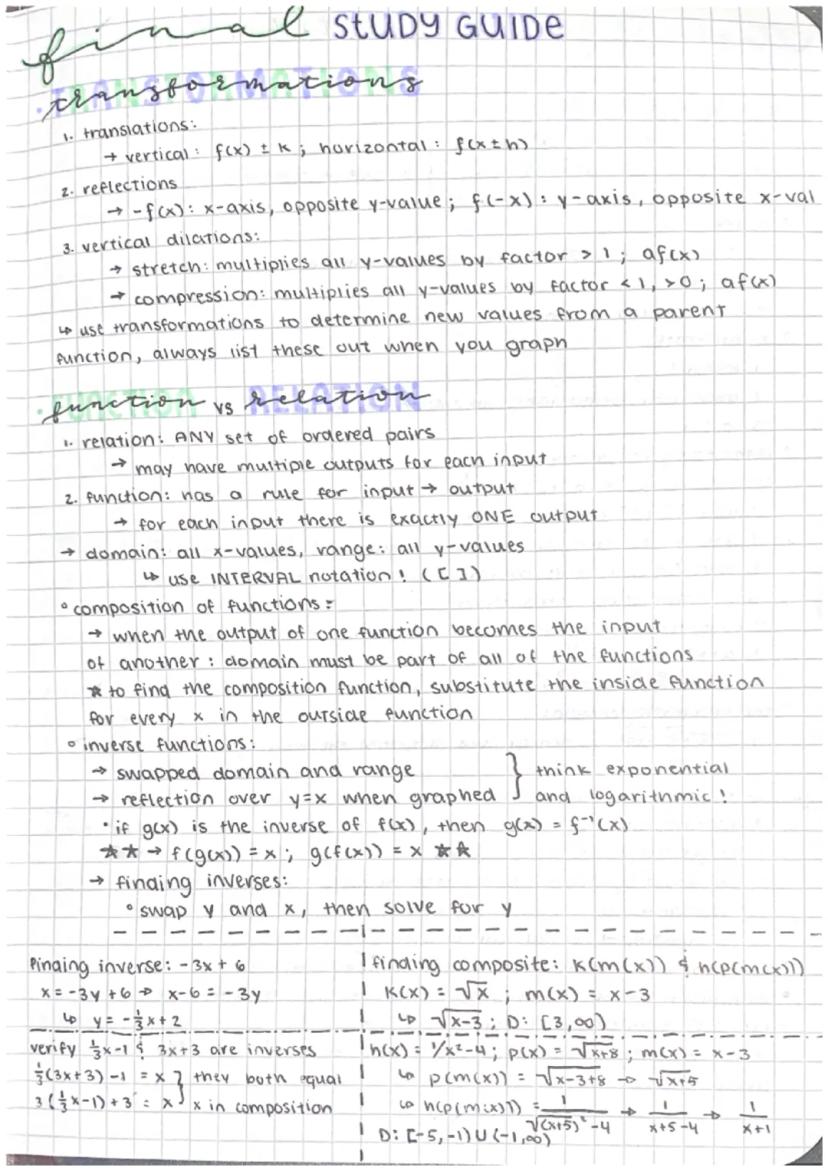 final STUDY GUIDE
· transformations
1. translations:
→ vertical: f(x) ± k ; horizontal: f(x±h)
2. reflections
→ -f(x): x-axis, opposite y-value; f(-x): y-axis, opposite x-val
3. vertical dilations:
→ stretch: multiplies all y-values by factor > 1; af(x)
→ compression: multiplies all y-values by factor < 1, >0; af(x)
↳ use transformations to determine new values from a parent
function, always list these out when you graph
· function vs relation
1. relation: ANY set of ordered pairs
→ may have multiple outputs for each input
2. function: has a rule for input → output
→ for each input there is exactly ONE output
→ domain: all x-values, range: all y-values
↳ use INTERVAL notation! ( [ ] )
° composition of functions:
→ when the output of one function becomes the input
of another: domain must be part of all of the functions
* to find the composition function, substitute the inside function
for every x in the outside function
° inverse functions:
→ swapped domain and range } think exponential
→ reflection over y=x when graphed } and logarithmic!
· if g(x) is the inverse of f(x), then g(x) = f⁻¹(x)
★★ → f(g(x)) = x ; g(f(x)) = x ★★
→ finding inverses:
° swap y and x, then solve for y
finding inverse: -3x + 6
x = -3y + 6 → x-6 = -3y
↳ y = -⅓x + 2
verify ⅓x-1 & 3x+3 are inverses
⅓(3x+3) -1 = x } they both equal
3(⅓x-1) + 3 = x } x in composition
finding composite: k(m(x)) & h(p(m(x)))
k(x) = √x ; m(x) = x-3
↳ √x-3 ; D: [3,∞)
h(x) = 1/x²-4 ; p(x) = √x+8 ; m(x) = x-3
↳ p(m(x)) = √x-3+8 → √x+5
↳ h(p(m(x))) = 1/√(x+5)² -4 → 1/x+5-4 → 1/x+1
D: [-5,-1) ∪ (-1,∞)